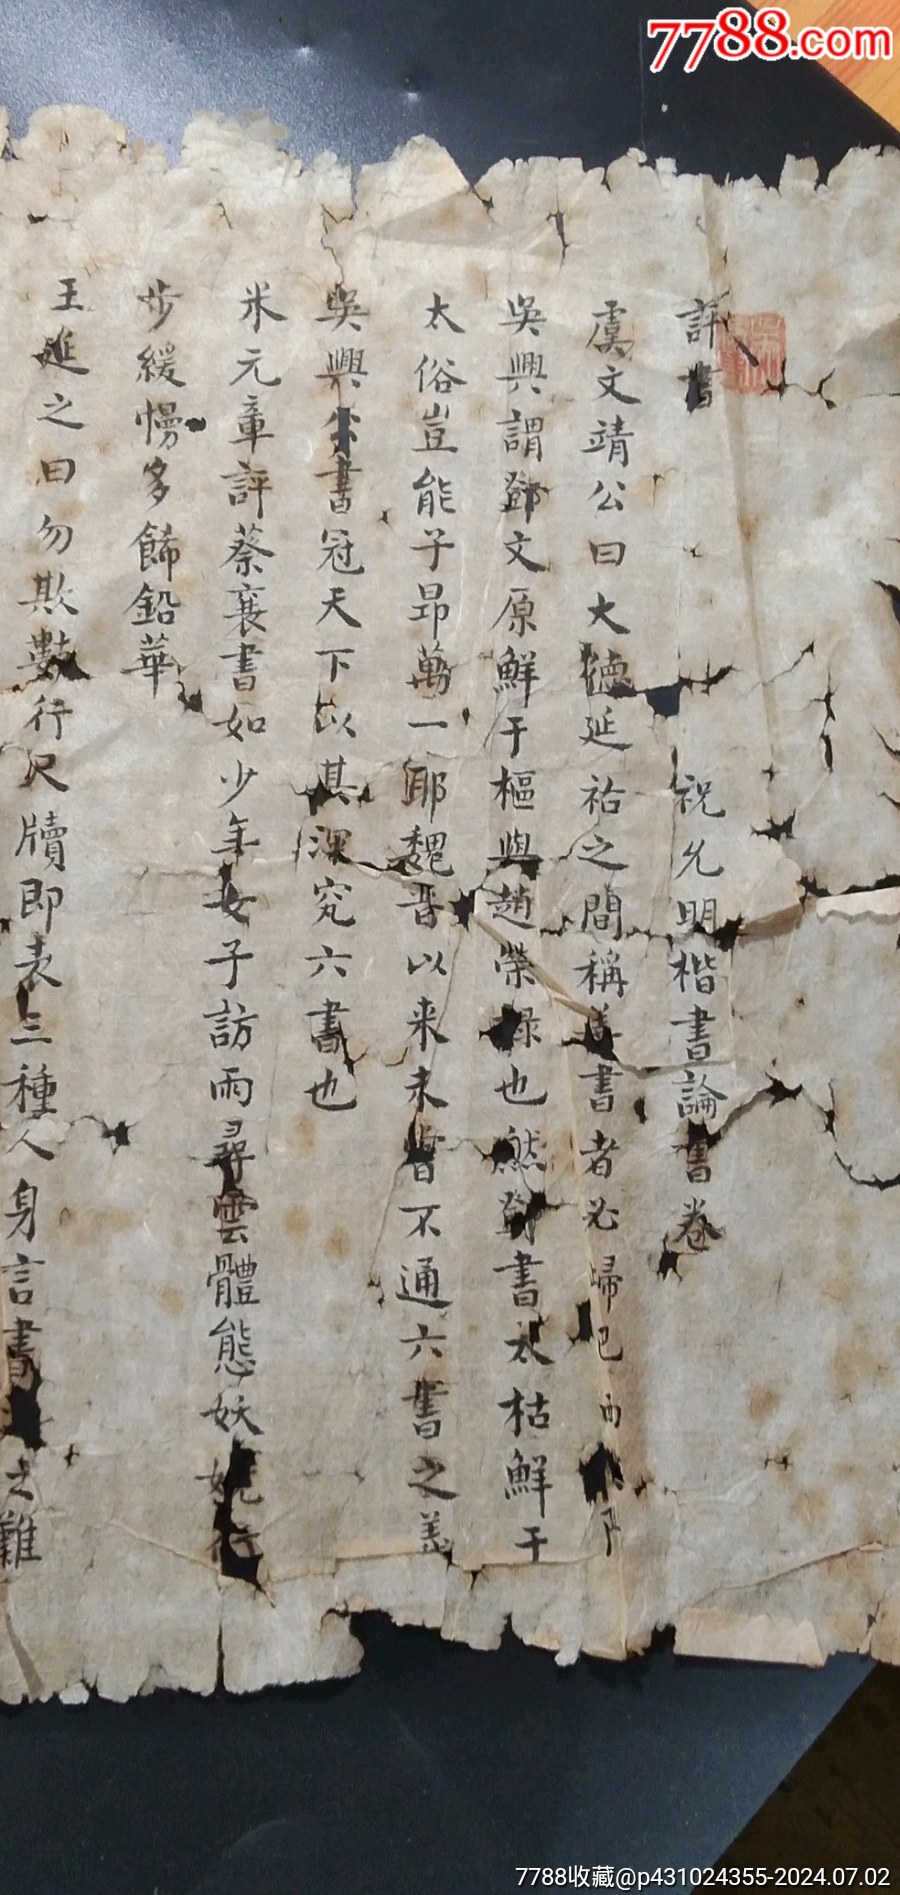 7788.com
評書
祝允明楷書論書卷
虞文靖公曰大德延祐之間稱善書者必歸巴西
吳興謂鄧文原鮮于樞與趙榮祿也然鄧書太枯鮮于
太俗豈能子昻萬一耶魏晋以来未嘗不通六書之義
吳興公書冠天下以其深究六書也
米元章評蔡襄書如少年女子訪雨尋雲體態妖嬈行
步緩慢多餙鉛華
王延之曰勿欺數行尺牘即表三種人身言書之難
7788收藏@p431024355-2024.07.02